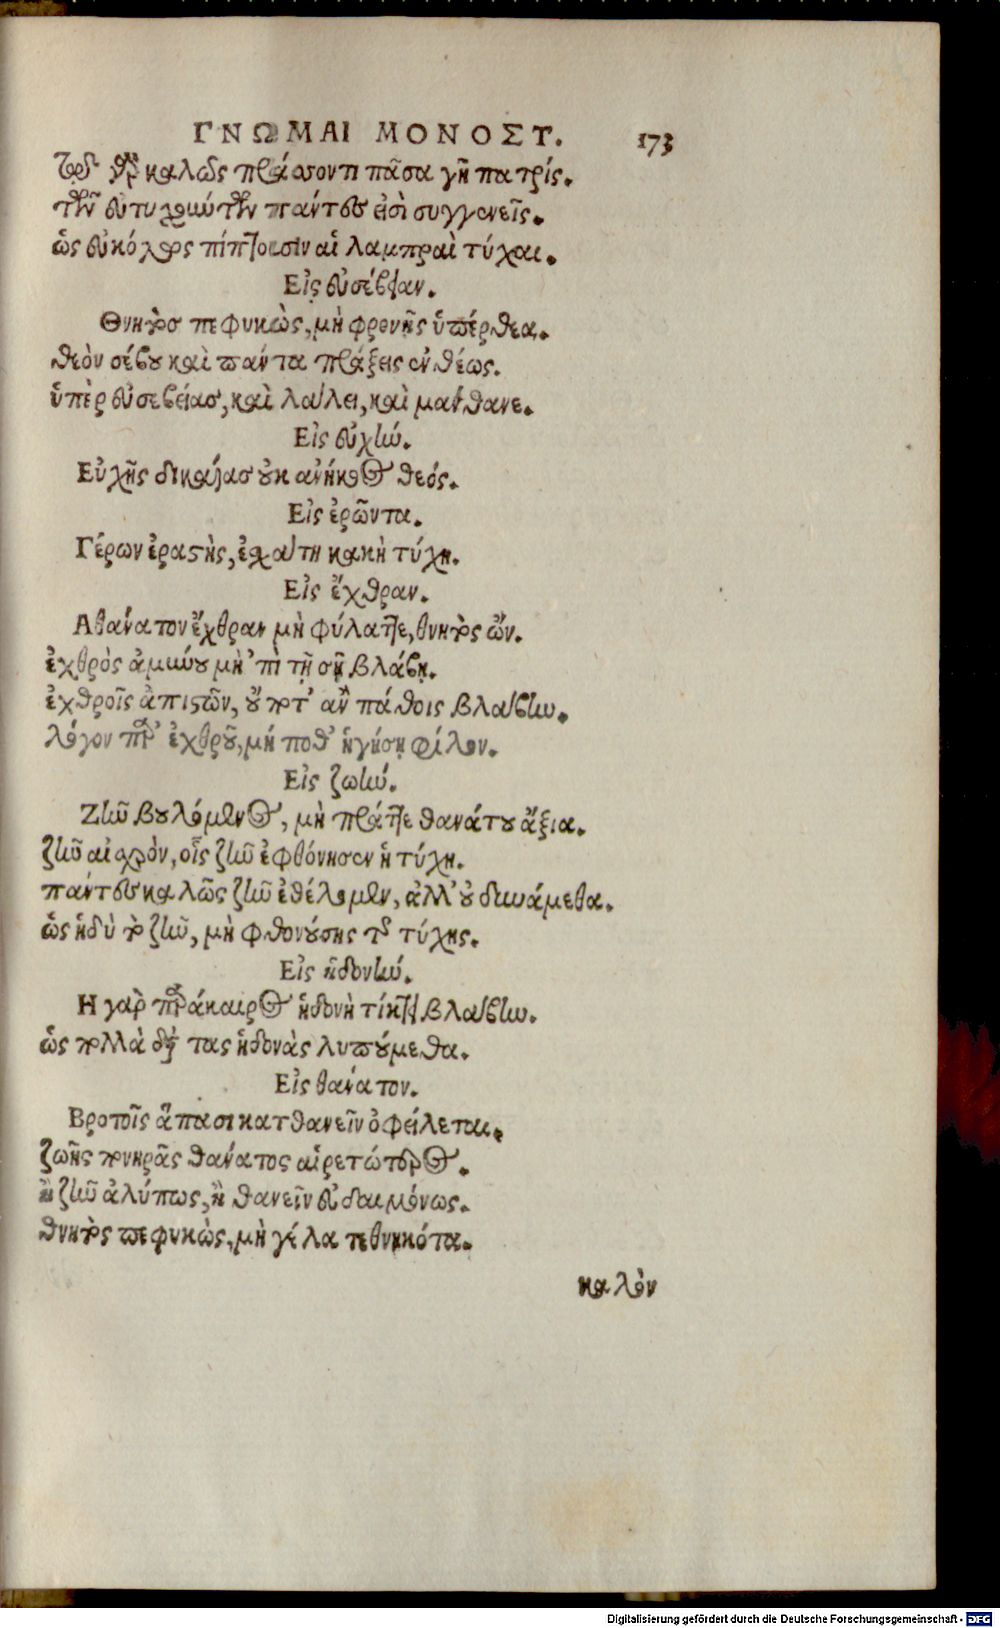 ΓΝΩΜΑΙ ΜΟΝΟΣΤ. 173
Τῷ γὰρ καλῶς πράσσοντι πᾶσα γῆ πατρίς.
τῶν εὐτυχούντων πάντες εἰσὶ συγγενεῖς.
ὡς εὐκόλως πίπτουσιν αἱ λαμπραὶ τύχαι.
Εἰς εὐσέβειαν.
Θνητὸς πεφυκὼς, μὴ φρονῇς ὑπέρθεα.
θεὸν σέβου καὶ πάντα πράξεις ἐνθέως.
ὑπὲρ εὐσεβείας, καὶ λάλει, καὶ μάνθανε.
Εἰς εὐχήν.
Εὐχῆς δικαίας οὐκ ἀνήκοος θεός.
Εἰς ἐρῶντα.
Γέρων ἐραστὴς, ἐσχάτη κακὴ τύχη.
Εἰς ἔχθραν.
Αθάνατον ἔχθραν μὴ φύλαττε, θνητὸς ὤν.
ἐχθρὸς ἀμύνου μὴ ’πὶ τῇ σῇ βλάβῃ.
ἐχθροῖς ἀπιστῶν, οὔποτ’ ἂν πάθοις βλάβην.
λόγον παρ’ ἐχθροῦ, μή ποθ’ ἡγήσῃ φίλον.
Εἰς ζωήν.
Ζῆν βουλόμενος, μὴ πράττε θανάτου ἄξια.
ζῆν αἰσχρὸν, οἷς ζῆν ἐφθόνησεν ἡ τύχη.
πάντες καλῶς ζῆν ἐθέλομεν, ἀλλ’ οὐ δυνάμεθα.
ὡς ἡδὺ τὸ ζῆν, μὴ φθονούσης τῆς τύχης.
Εἰς ἡδονήν.
Η γὰρ παράκαιρος ἡδονὴ τίκτει βλάβην.
ὡς πολλὰ διὰ τας ἡδονὰς λυπούμεθα.
Εἰς θάνατον.
Βροτοῖς ἅπασι κατθανεῖν ὀφείλεται.
ζωῆς πονηρᾶς θάνατος αἱρετώτερος.
ἢ ζῆν ἀλύπως, ἢ θανεῖν εὐδαιμόνως.
θνητὸς πεφυκὼς, μὴ γέλα τεθνηκότα.
καλὸν
Digitalisierung gefördert durch die Deutsche Forschungsgemeinschaft - DFG